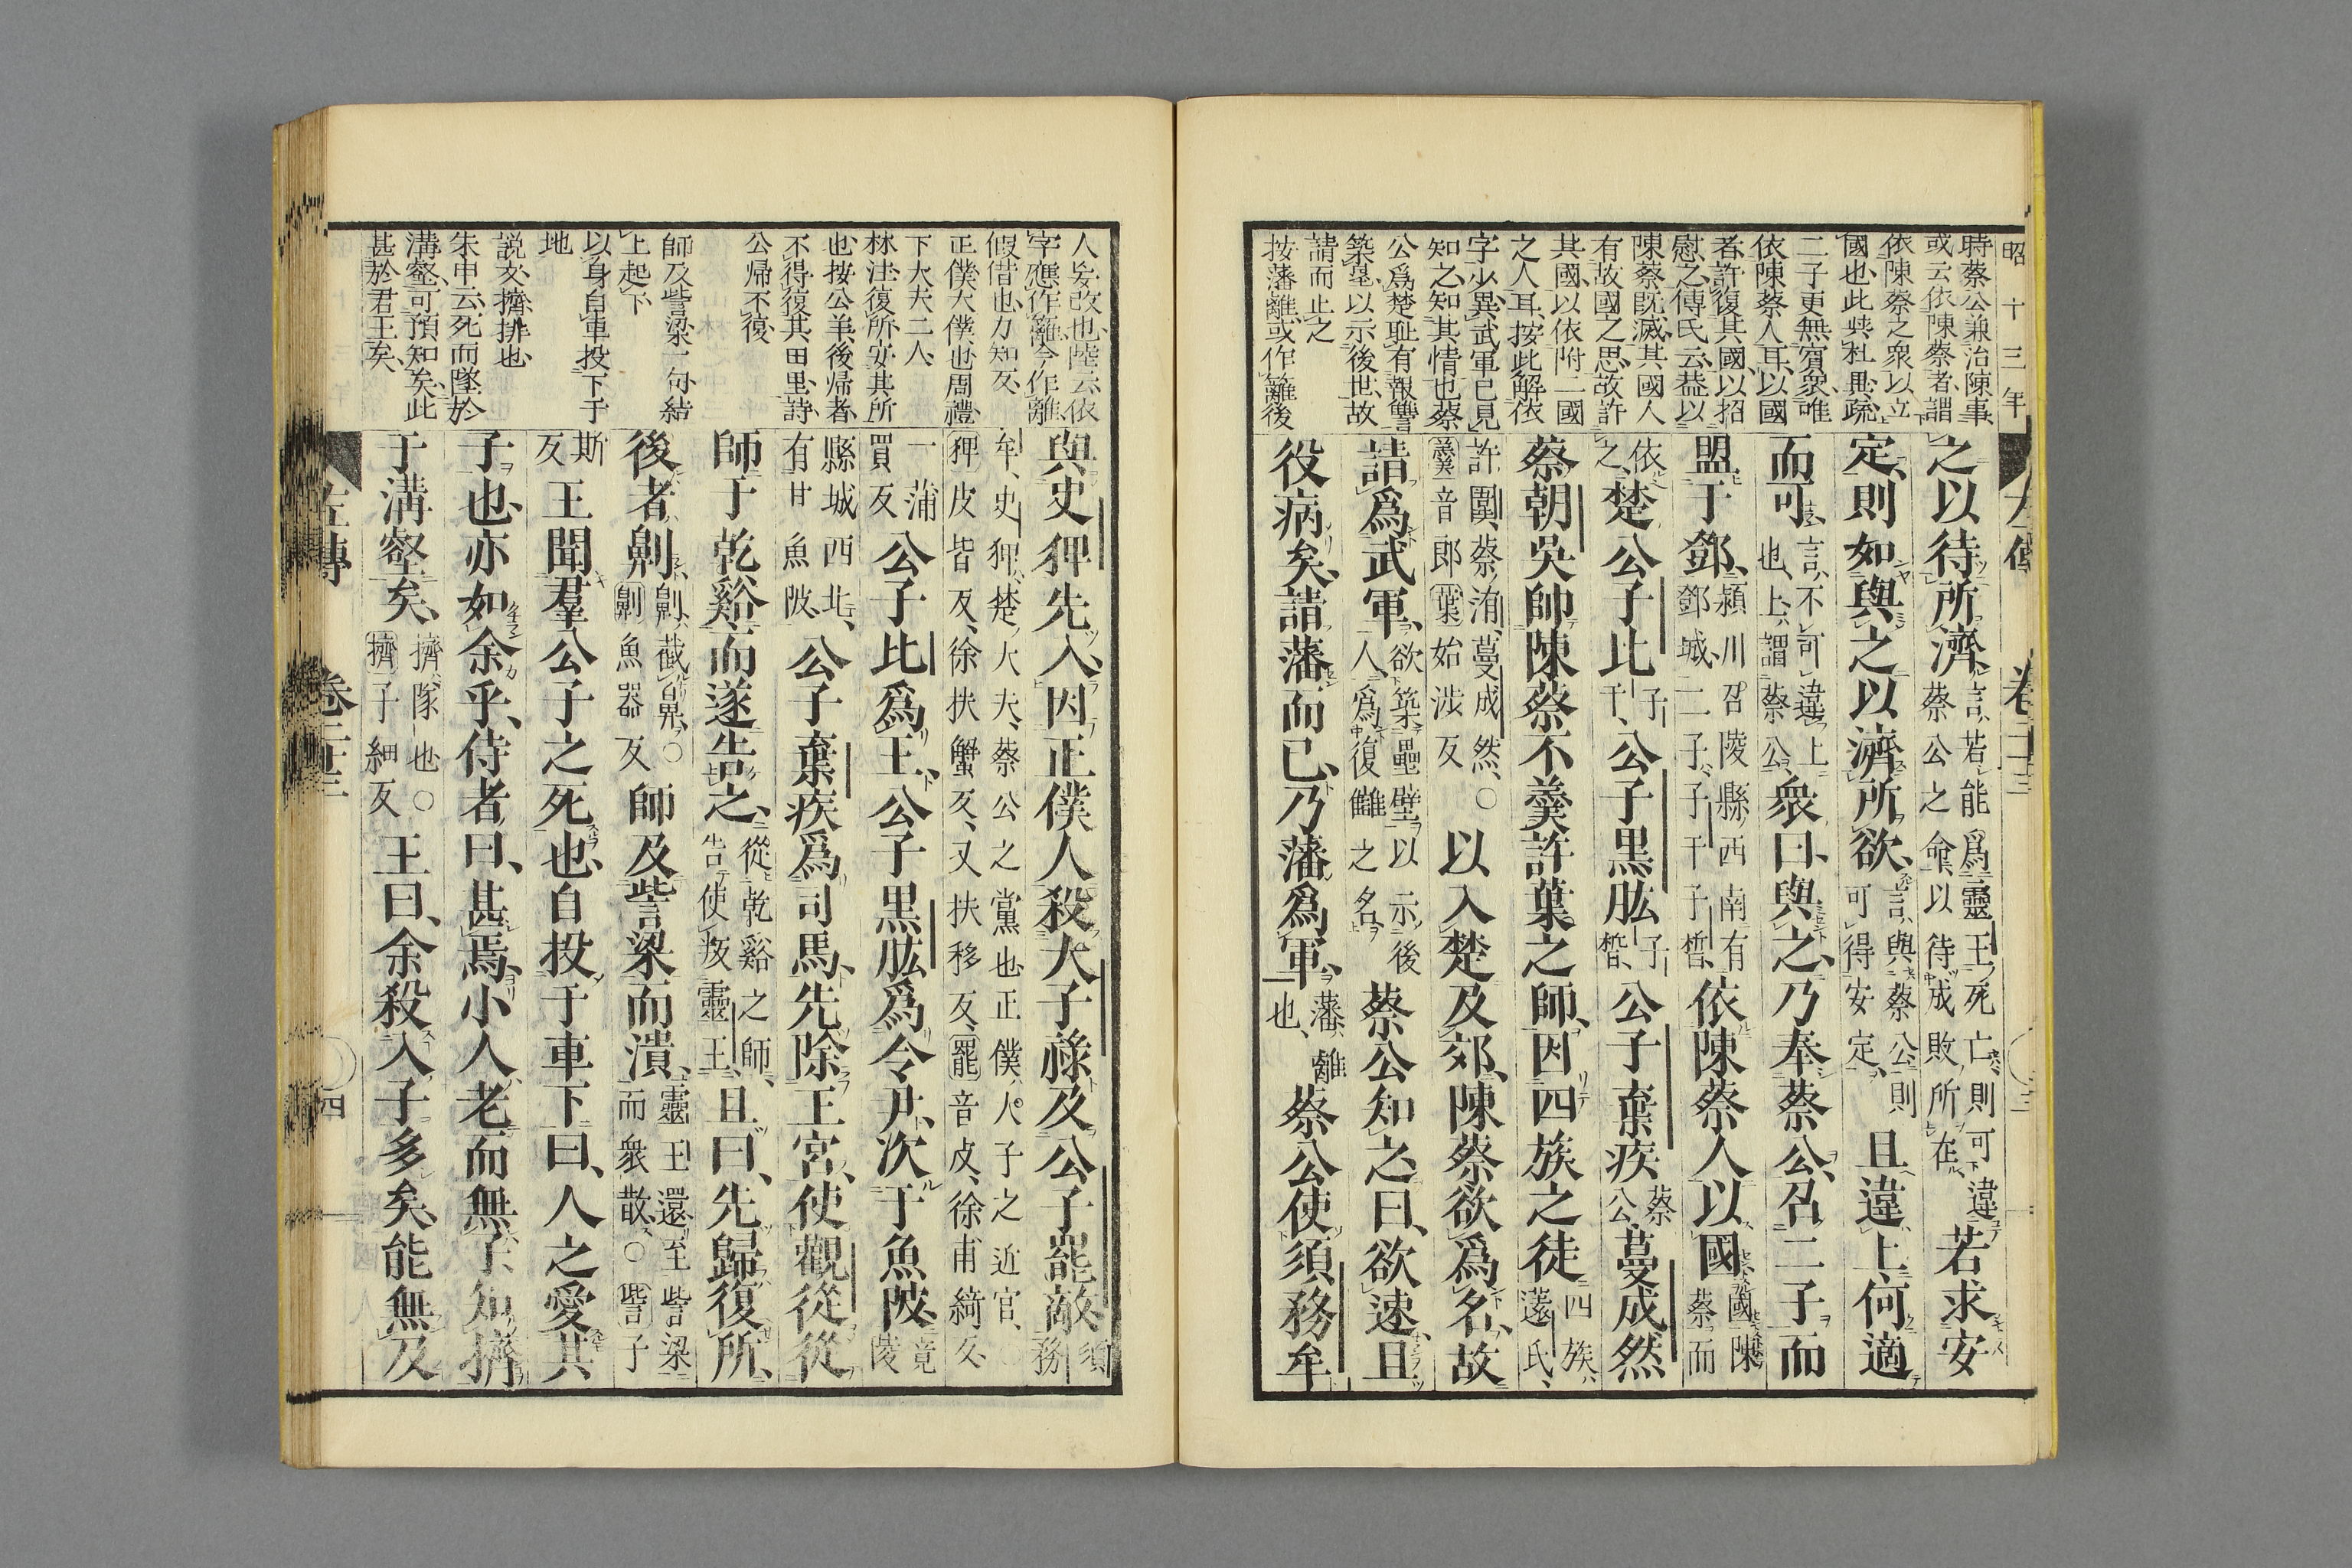 昭十三年
左傳 卷二十三 三
時蔡公兼治陳事
或云依陳蔡者謂
依陳蔡之衆以立
國也此與杜異疏
二子更無賓衆唯
依陳蔡人耳以國
者許復其國以招
慰之傅氏云蓋以
陳蔡既滅其國人
有故國之思故許
其國以依附二國
之人耳按此解依
字少異武軍已見
知之知其情也蔡
公爲楚耻有報讐
築墓以示後世故
請而止之
按藩離或作籬後
之以待所濟言若能爲靈王死亡則可違蔡公之命以待成敗所在若求安
定則如與之以濟所欲言與蔡公則可得安定且違上何適
而可言不可違上也上謂蔡公衆曰與之乃奉蔡公召二子而
盟于鄧潁川召陵縣西南有鄧城二子子干子皙依陳蔡人以國國陳蔡而
依之楚公子比子干公子黑肱子皙公子棄疾蔡公蔓成然
蔡朝吳帥陳蔡不羹許葉之師因四族之徒四族薳氏
許圍蔡洧蔓成然○羹音郎葉始涉反以入楚及郊陳蔡欲爲名故
請爲武軍欲築壘壁以示後人爲復讎之名蔡公知之曰欲速且
役病矣請藩而已乃藩爲軍藩離也蔡公使須務牟
人妄改也陸云依
字應作籬今作離
假借也力知反
正僕大僕也周禮
下大夫二人
林注復所安其所
也按公羊後歸者
不得復其田里詩
公歸不復
師及訾梁一句結
上起下
以身自車投下于
地
說文擠排也
朱申云死而墜於
溝壑可預知矣此
甚於君王矣
與史猈先入因正僕人殺大子祿及公子罷敵須務
牟史猈楚大夫蔡公之黨也正僕大子之近官猈皮皆反徐扶蟹反又扶移反罷音皮徐甫綺反
一蒲買反公子比爲王公子黑肱爲令尹次于魚陂竟陵
縣城西北有甘魚陂公子棄疾爲司馬先除王宮使觀從從
師于乾谿而遂告之從乾谿之師告使叛靈王且曰先歸復所
後者劓劓截鼻○劓魚器反師及訾梁而潰靈王還至訾梁而衆散○訾子
斯反王聞羣公子之死也自投于車下曰人之愛其
子也亦如余乎侍者曰甚焉小人老而無子知擠
于溝壑矣擠隊也○擠子細反王曰余殺人子多矣能無及
左傳 卷二十三 四